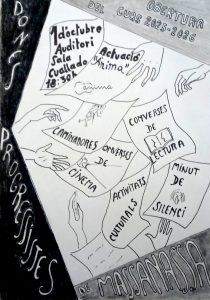 OBERTURA
DEL CURS 2025-2026
DONES
PROGRESSISTES
DE MASSANASSA
1 d'octubre
Auditori
Sala
Cuallado
18:30h
Actuació
CONVERSES
DE
LECTURA
CAMINADORES
CONVERSES
DE
CINEMA
MINUT
DE
SILENCI
ACTIVITATS
CULTURALS